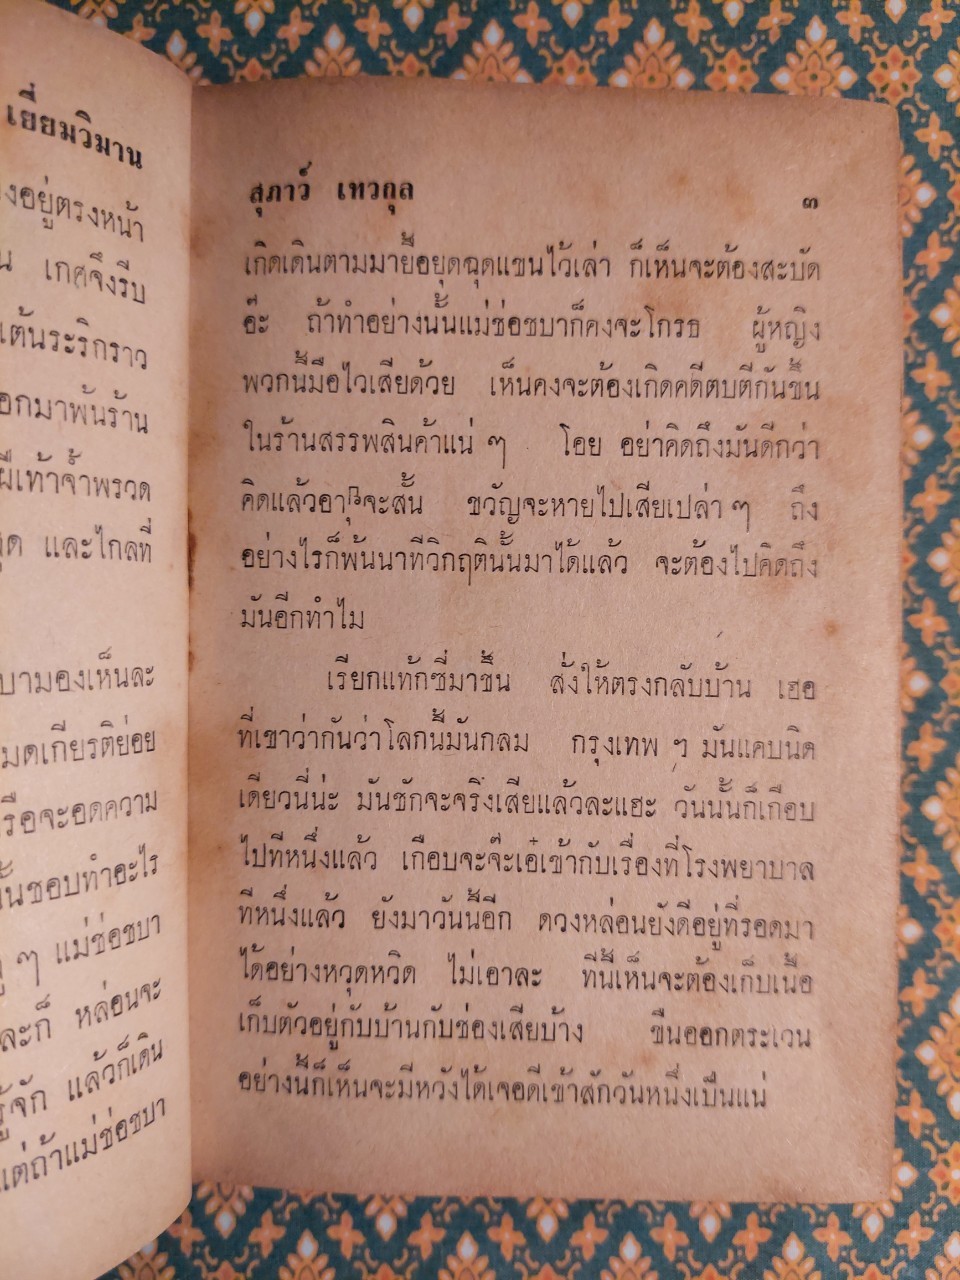 เยี่ยมวิมาน
อยู่ตรงหน้า
เกศจึงรีบ
เต้นระริกราว
ออกมาพ้นร้าน
ผีเท้าจ้ำพรวด
และไกลที่
มองเห็นละ
เกียรติย่อย
หรือจะอดความ
นั้นชอบทำอะไร
ๆ แม่ช่อชบา
ละก็ หล่อนจะ
รู้จัก แล้วก็เดิน
แต่ถ้าแม่ช่อชบา
สุภาว์ เทวกุล ๓
เกิดเดินตามมายื้อยุดฉุดแขนไว้เล่า ก็เห็นจะต้องสะบัด
อ๊ะ ถ้าทำอย่างนั้นแม่ช่อชบาก็คงจะโกรธ ผู้หญิง
พวกนี้มือไวเสียด้วย เห็นคงจะต้องเกิดคดีตบตีกันขึ้น
ในร้านสรรพสินค้าแน่ ๆ โอย อย่าคิดถึงมันดีกว่า
คิดแล้วอายุจะสั้น ขวัญจะหายไปเสียเปล่า ๆ ถึง
อย่างไรก็พ้นนาทีวิกฤตินั้นมาได้แล้ว จะต้องไปคิดถึง
มันอีกทำไม
เรียกแท้กซี่มาขึ้น สั่งให้ตรงกลับบ้าน เฮอ
ที่เขาว่ากันว่าโลกนี้มันกลม กรุงเทพ ฯ มันแคบนิด
เดียวนี่น่ะ มันชักจะจริงเสียแล้วละแฮะ วันนั้นก็เกือบ
ไปทีหนึ่งแล้ว เกือบจะจ๊ะเอ๋เข้ากับเรื่องที่โรงพยาบาล
ทีหนึ่งแล้ว ยังมาวันนี้อีก ดวงหล่อนยังดีอยู่ที่รอดมา
ได้อย่างหวุดหวิด ไม่เอาละ ทีนี้เห็นจะต้องเก็บเนื้อ
เก็บตัวอยู่กับบ้านกับช่องเสียบ้าง ขืนออกตระเวน
อย่างนี้ก็เห็นจะมีหวังได้เจอดีเข้าสักวันหนึ่งเป็นแน่